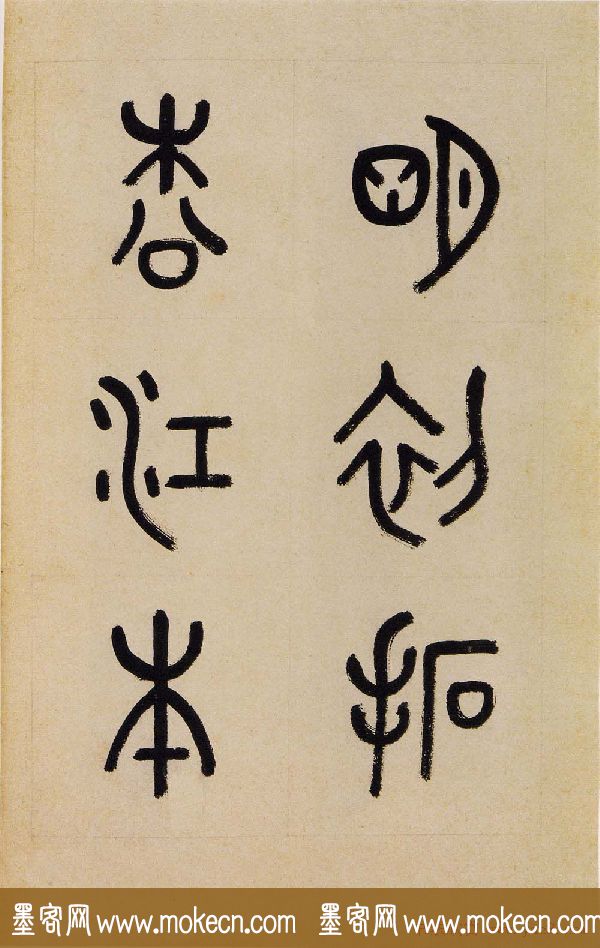 明初拓
松江本
墨客网 www.mokecn.com 墨客网 www.mokecn.com